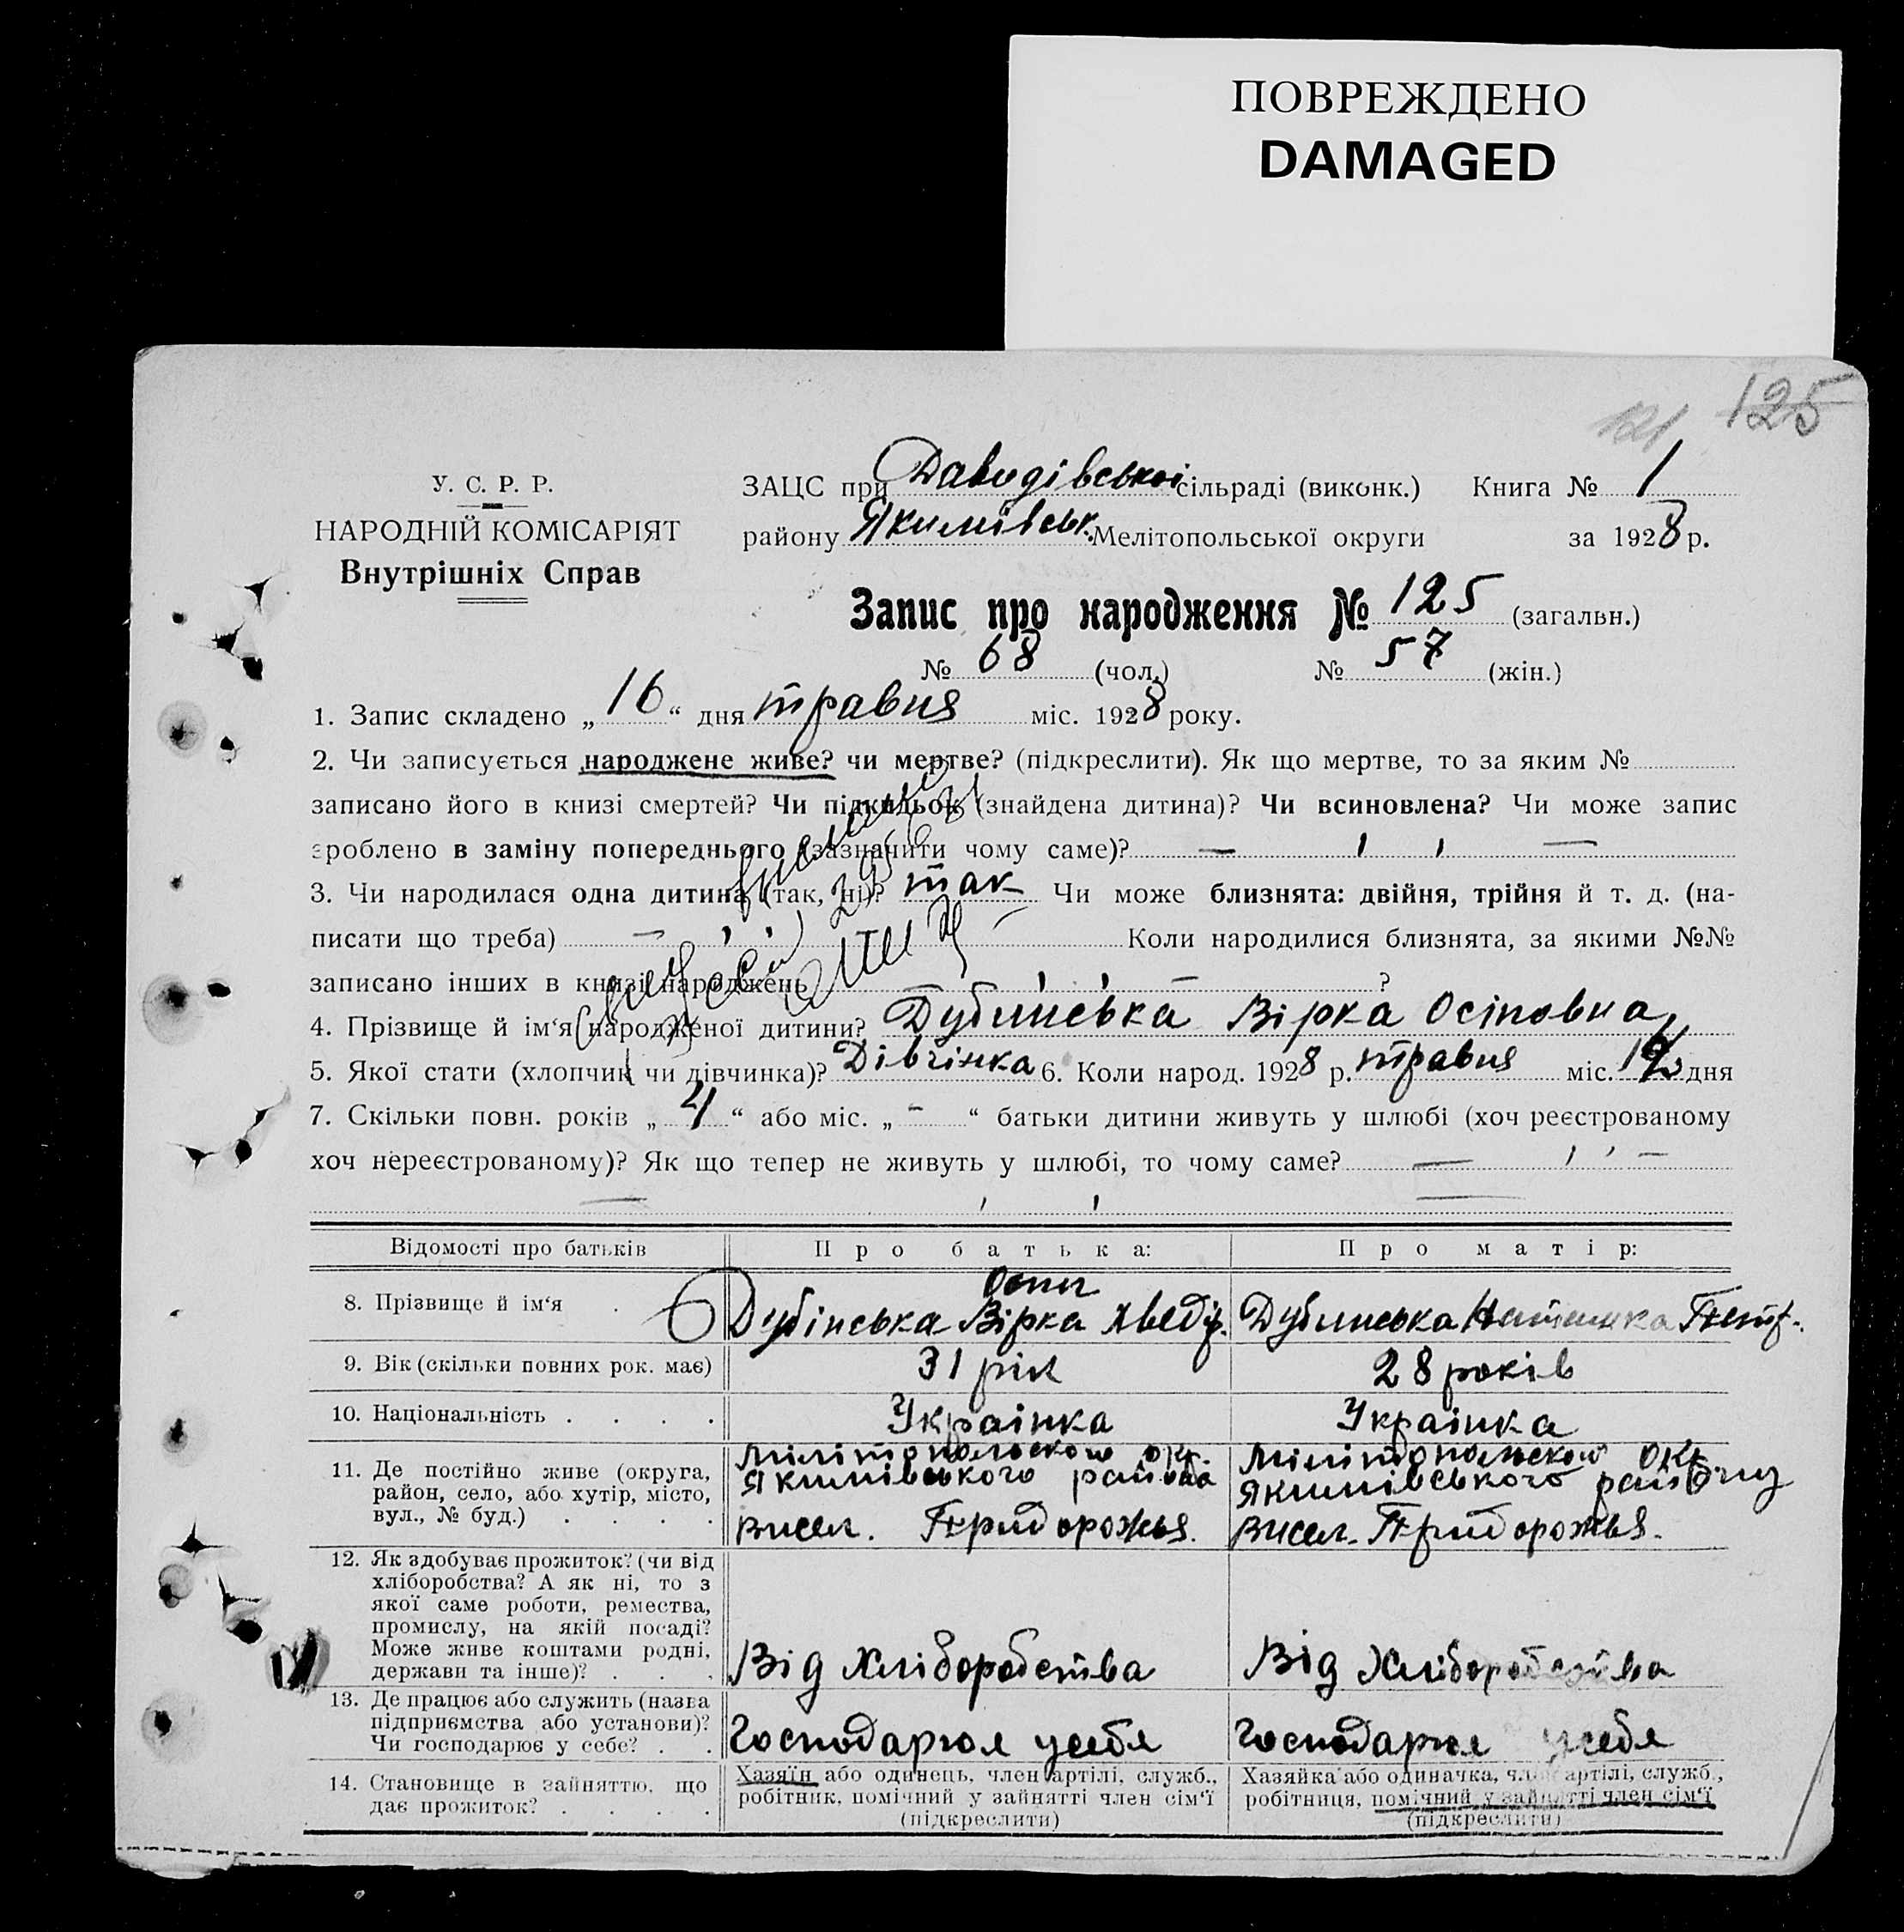 ПОВРЕЖДЕНО
DAMAGED
125
121
У. С. Р. Р.
НАРОДНІЙ КОМІСАРІЯТ
Внутрішніх Справ
ЗАЦС при Давидівської сільраді (виконк.) Книга № 1
району Якимівськ. Мелітопольської округи за 1928 р.
Запис про народження № 125 (загальн.)
№ 68 (чол.) № 57 (жін.)
1. Запис складено „ 16 “ дня травня міс. 1928 року.
2. Чи записується народжене живе? чи мертве? (підкреслити). Як що мертве, то за яким №
записано його в книзі смертей? Чи підкидьок (знайдена дитина)? Чи всиновлена? Чи може запис
зроблено в заміну попереднього (зазначити чому саме)? — , , —
3. Чи народилася одна дитина (так, ні)? так Чи може близнята: двійня, трійня й т. д. (на-
писати що треба) — , , — Коли народилися близнята, за якими №№
записано інших в книзі народжень ?
4. Прізвище й ім‘я народженої дитини? Дубинська Вірка Осіповна
5. Якої стати (хлопчик чи дівчинка)? Дівчінка 6. Коли народ. 1928 р. травня міс. дня
7. Скільки повн. років „ 4 “ або міс. „ - “ батьки дитини живуть у шлюбі (хоч реєстрованому
хоч нереєстрованому)? Як що тепер не живуть у шлюбі, то чому саме? — , , —
— , , —
Відомості про батьків Про батька: Про матір:
8. Прізвище й ім‘я . Дубінська Вірка Хведір. Дубинська Наталка Петр.
Осип
9. Вік (скільки повних рок. має) 31 рік 28 років
10. Національність . . . . Українка Українка
11. Де постійно живе (округа,
район, село, або хутір, місто,
вул., № буд.) . . . .
Мілітопольскои окр.
Якимівського района
висел. Придорожья.
Мілітопольскои окр.
Якимівського району
висел. Придорожья.
12. Як здобуває прожиток? (чи від
хліборобства? А як ні, то з
якої саме роботи, ремества,
промислу, на якій посаді?
Може живе коштами родні,
держави та інше)? . . .
Від Хліборобства Від Хліборобства
13. Де працює або служить (назва
підприємства або установи)?
Чи господарює у себе? . .
Господарюя усебя Господарюя усебя
14. Становище в зайняттю, що
дає прожиток? . . . .
Хазяїн або одинець, член артілі, служб.,
робітник, помічний у зайнятті член сім‘ї
(підкреслити)
Хазяйка або одиначка, член артілі, служб.,
робітниця, помічний у зайнятті член сім‘ї
(підкреслити)